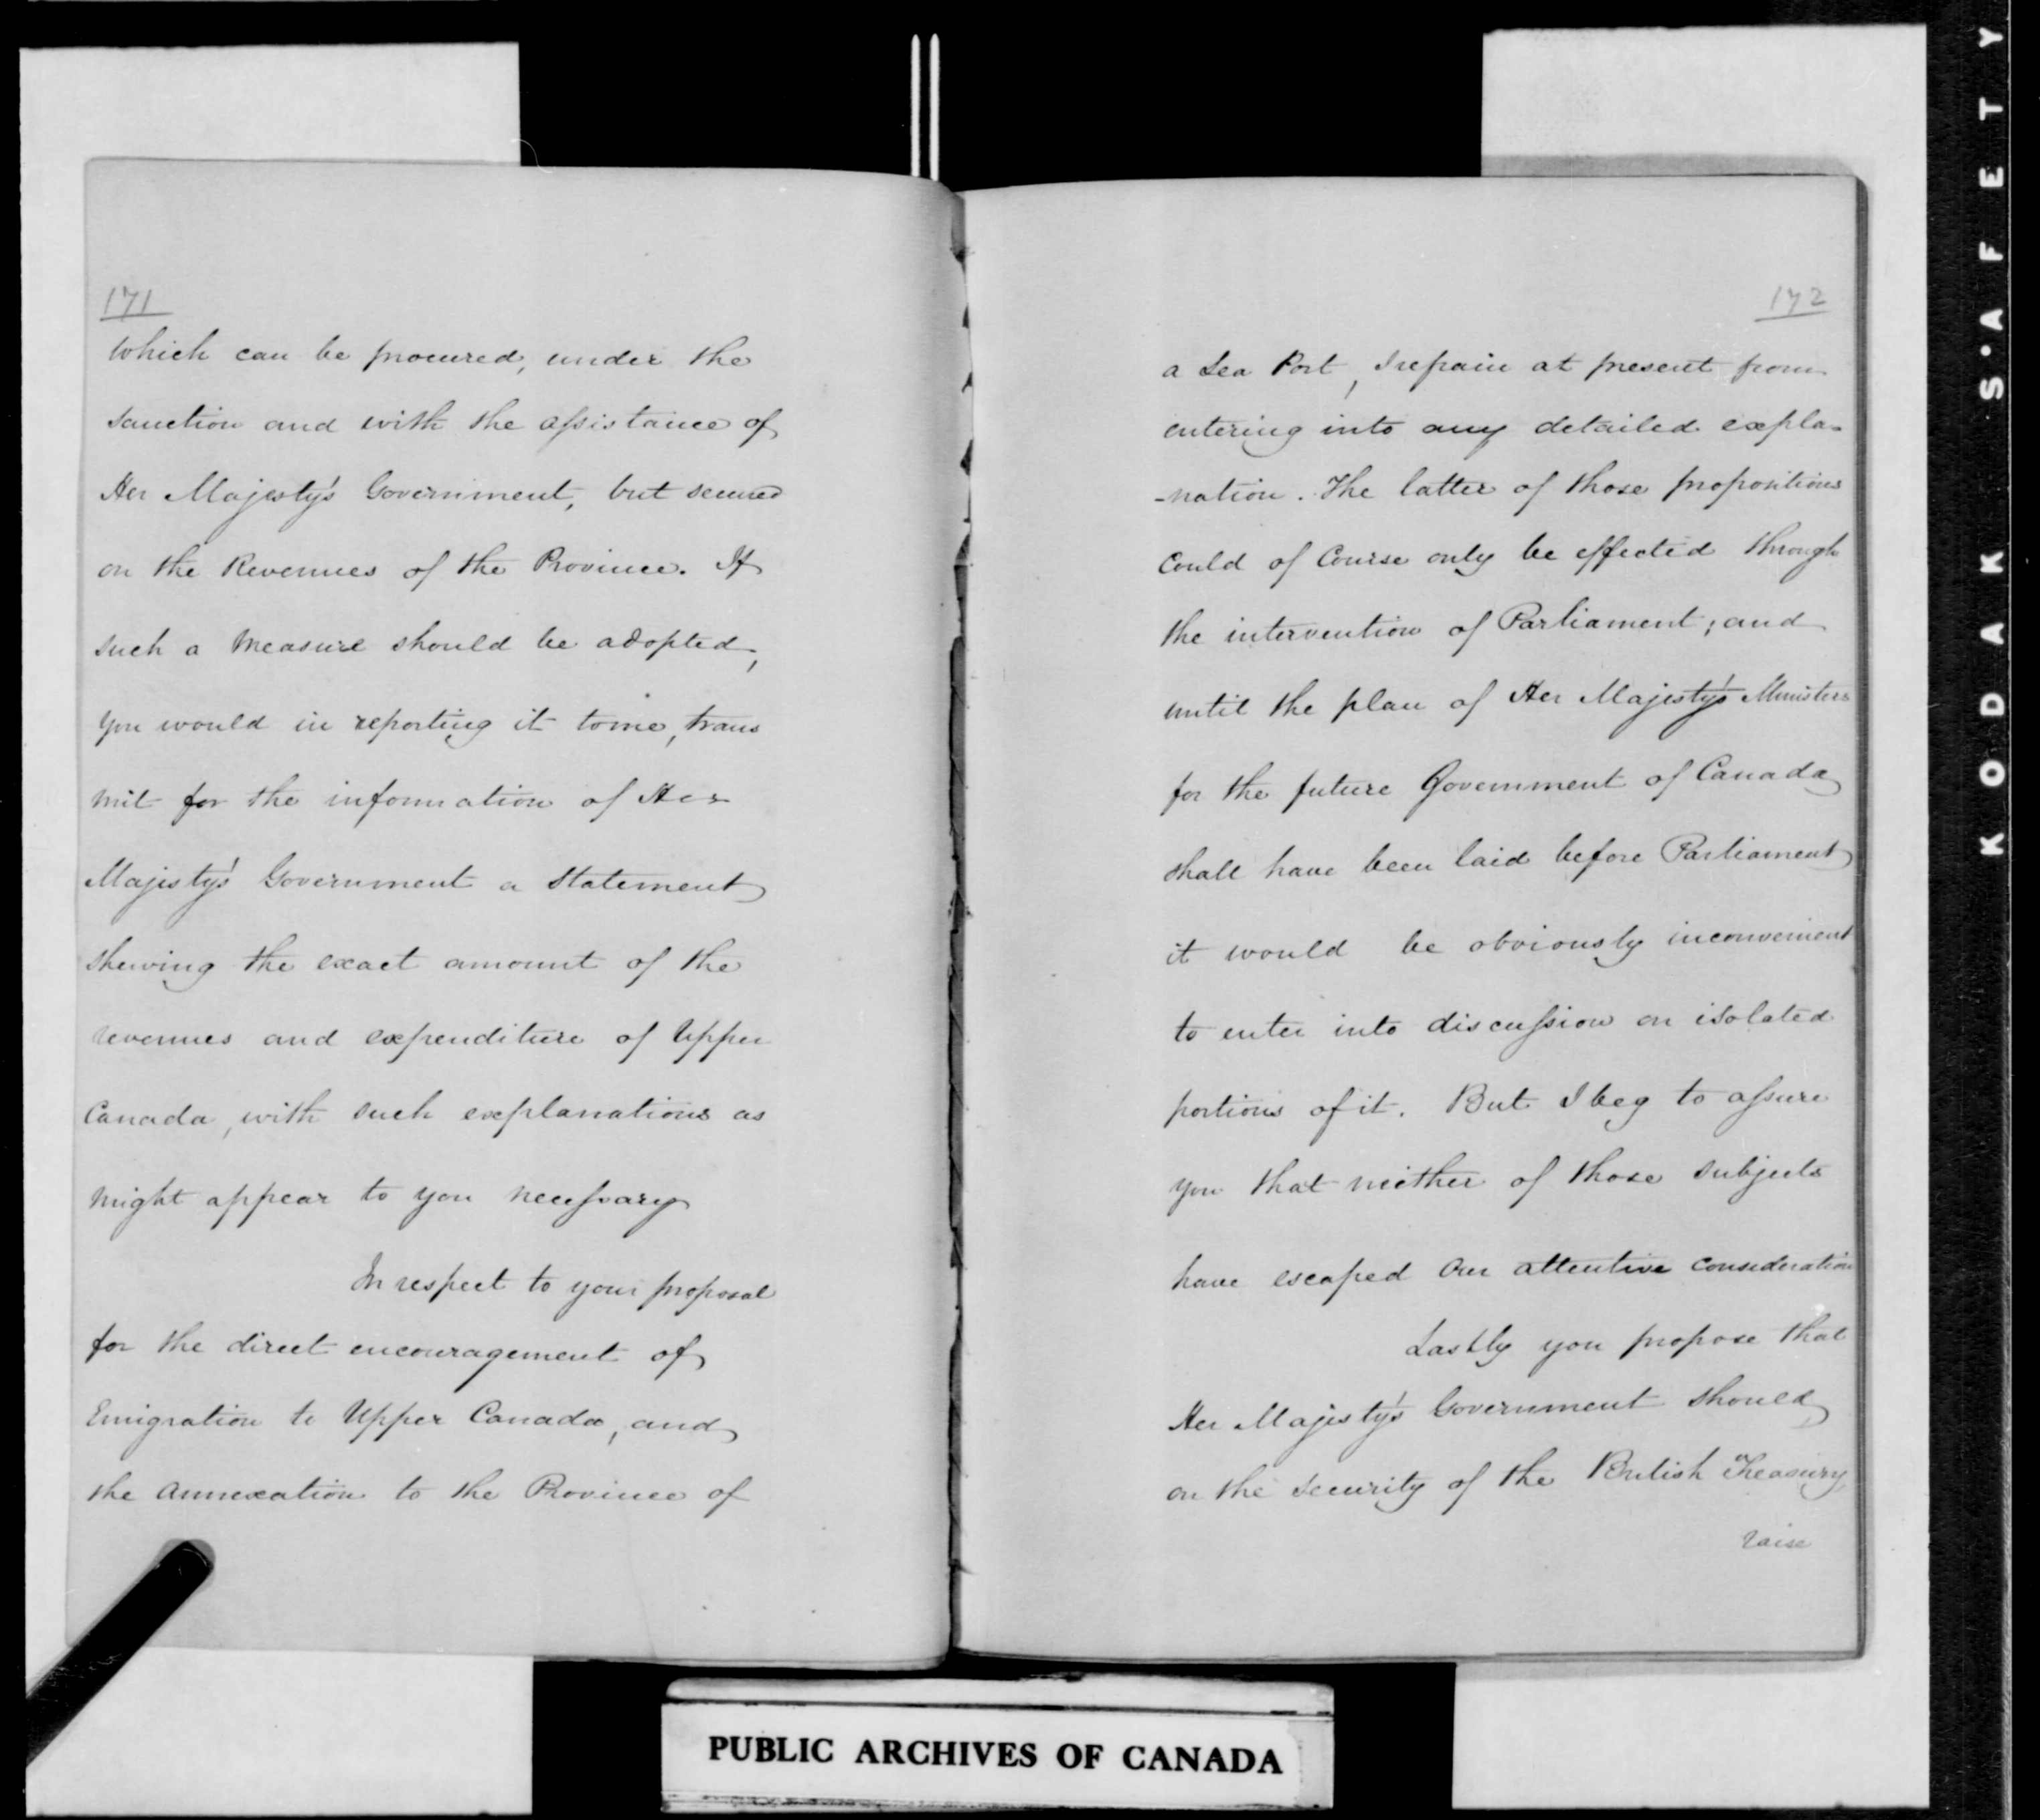 171
which can be procured, under the
sanction and with the assistance of
Her Majesty's Government, but secured
on the Revenues of the Province. If
such a measure should be adopted,
you would in reporting it to me, trans
mit for the information of Her
Majesty's Government a Statement
shewing the exact amount of the
revenues and expenditure of Upper
Canada, with such explanations as
might appear to you necessary
In respect to your proposal
for the direct encouragement of
Emigration to Upper Canada, and
the annexation to the Province of
172
a Sea Port, I refrain at present from
entering into any detailed expla-
-nation. The latter of those propositions
could of Course only be effected through
the intervention of Parliament; and
until the plan of Her Majesty's Ministers
for the future Government of Canada
shall have been laid before Parliament
it would be obviously inconvenient
to enter into discussion on isolated
portions of it. But I beg to assure
you that neither of those subjects
have escaped our attentive consideration
Lastly you propose that
Her Majesty's Government should
on the security of the British Treasury
raise
PUBLIC ARCHIVES OF CANADA
KODAK S.AFETY